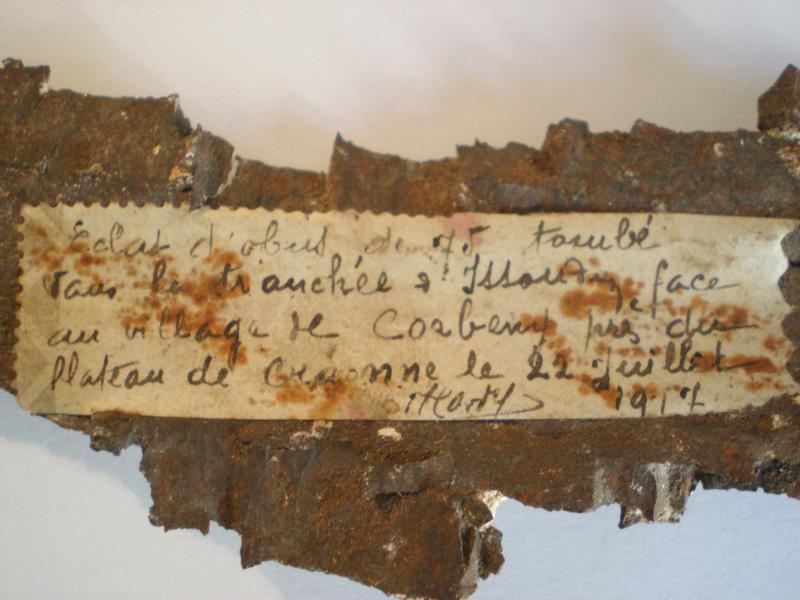 Eclat d'obus de 75 tombé
dans la tranchée d'Issoudun face
au village de Corbeny près du
Plateau de Craonne le 22 Juillet
1917